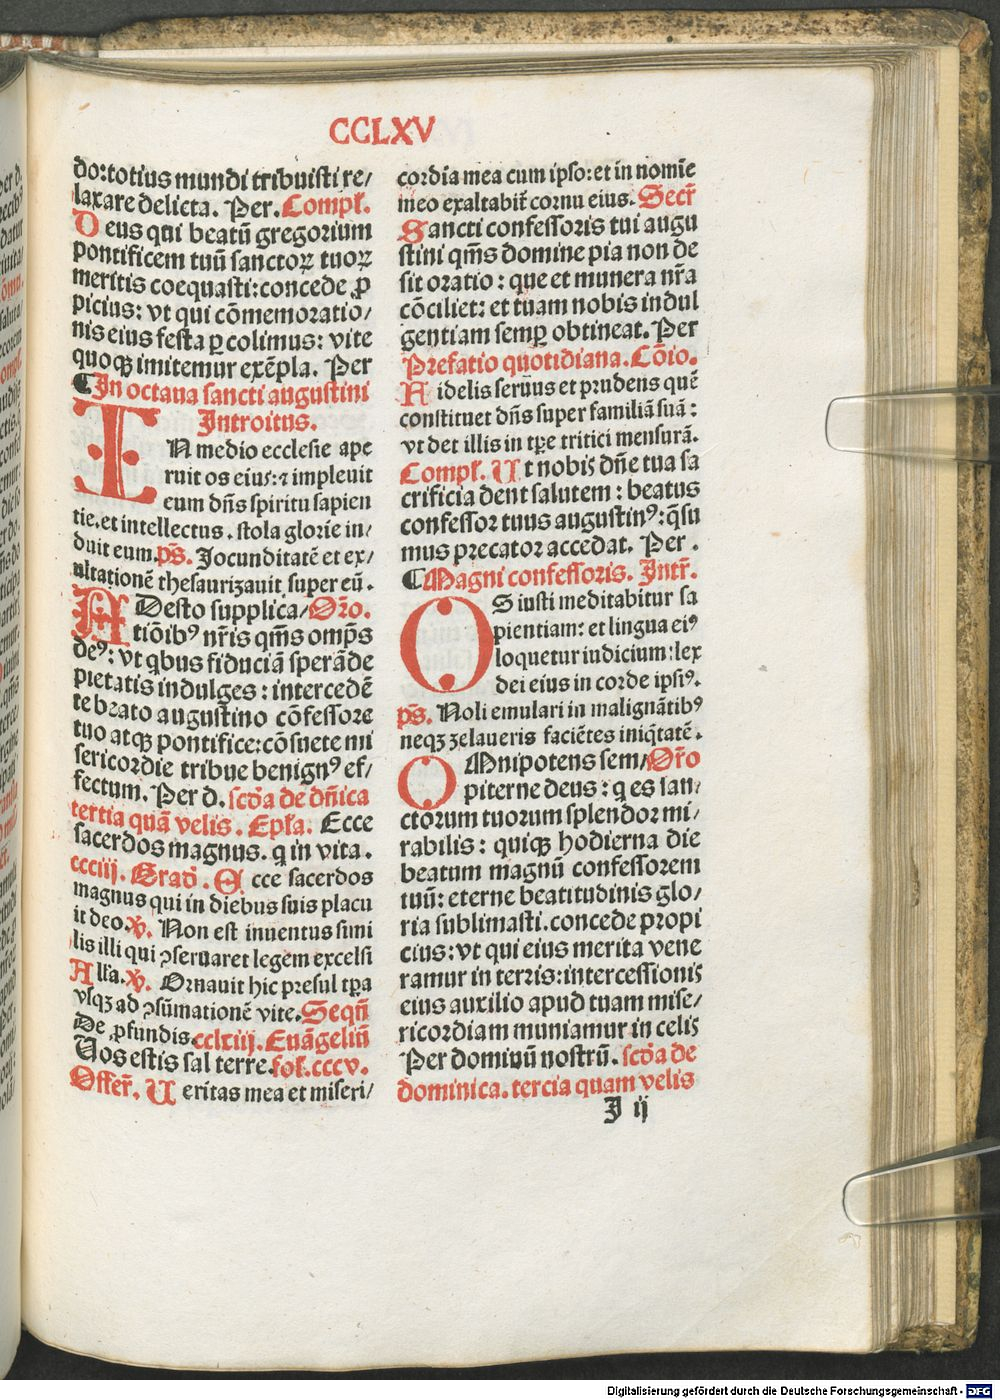 CCLXV
do: totius mundi tribuisti re/
laxare delicta. Per. Compl̃.
Deus qui beatū gregorium
pontificem tuū sanctoꝝ tuoꝝ
meritis coequasti: concede ꝓ
picius: vt qui cōmemoratio/
nis eius festa ꝑcolimus: vite
quoqꝫ imitemur exẽpla. Per
¶In octaua sancti augustini
Introitus.
IN medio ecclesie ape
ruit os eius: ⁊ impleuit
eum dñs spiritu sapien
tie. et intellectus. stola glorie in/
duit eum. ps̃. Jocunditatẽ et ex/
ultationẽ thesaurizauit super eũ.
ADesto supplica/ Or̃o.
tiõibꝰ nr̃is qm̃s omp̃s
deꝰ: vt qbus fiduciã sperãde
pietatis indulges: intercedẽ
te beato augustino cõfessore
tuo atqꝫ pontifice: cõsuete mi
sericordie tribue benignꝰ ef/
fectum. Per d. scd̃a de dñica
tertia quã velis. Epl̃a. Ecce
sacerdos magnus. q in vita.
ccciij. Grad̃. Ecce sacerdos
magnus qui in diebus suis placu
it deo. v̉. Non est inuentus simi
lis illi qui ꝯseruaret legem excelsi
All̃a. v̉. Ornauit hic presul tp̃a
vsqꝫ ad ꝯsũmationẽ vite. Seqñ
De ꝓfundis. cclxiij. Euãgeliũ
Uos estis sal terre. fol̃. cccv.
Offer̃. Ueritas mea et miseri/
cordia mea cum ipso: et in nomĩe
meo exaltabit̃ cornu eius. Secr̃
Sancti confessoris tui augu
stini qm̃s domine pia non de
sit oratio: que et munera nr̃a
cõciliet: et tuam nobis indul
gentiam semꝑ obtineat. Per
Prefatio quotidiana. Cõio.
Fidelis seruus et prudens quẽ
constituet dñs super familiã suã:
vt det illis in tp̃e tritici mensurã.
Compl̃. Ut nobis dñe tua sa
crificia dent salutem: beatus
confessor tuus augustinꝰ: qsu
mus precator accedat. Per.
¶Magni confessoris. Intr̃.
OS iusti meditabitur sa
pientiam: et lingua eiꝰ
loquetur iudicium: lex
dei eius in corde ipsiꝰ.
ps̃. Noli emulari in malignãtibꝰ
neqꝫ zelaueris faciẽtes iniqtatẽ.
OMnipotens sem/ Or̃o
piterne deus: q es san/
ctorum tuorum splendor mi/
rabilis: quiqꝫ hodierna die
beatum magnũ confessorem
tuũ: eterne beatitudinis glo/
ria sublimasti. concede propi
cius: vt qui eius merita vene
ramur in terris: intercessionis
eius auxilio apud tuam mise/
ricordiam muniamur in celis
Per dominũ nostrũ. scd̃a de
dominica. tercia quam velis
I ij
Digitalisierung gefördert durch die Deutsche Forschungsgemeinschaft - DFG